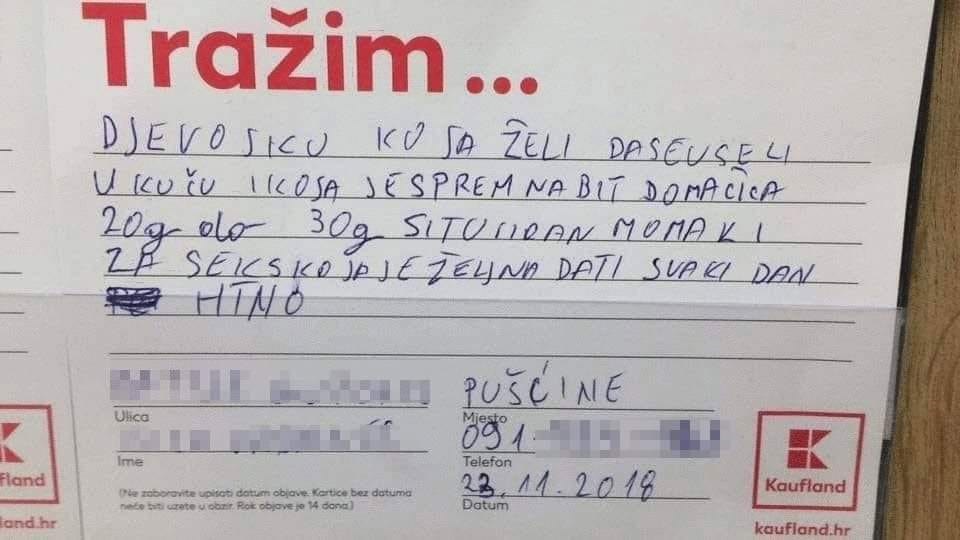 Tražim...
DJEVOJKU KOJA ŽELI DASEUSELI
U KUČU IKOJA JESPREMNABIT DOMAČICA
20g do 30g SITUIIDAN MOMAK I
ZA SEKSKOJAJEŽELJNA DATI SVAKI DAN
HITNO
PUŠĆINE
Ulica
Mjesto
091
Ime
Telefon
(Ne zaboravite upisati datum objave. Kartice bez datuma
neće biti uzete u obzir. Rok objave je 14 dana.)
23.11.2018
Datum
Kaufland
kaufland.hr
fland
and.hr